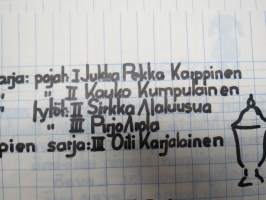 arja: pojat: I Jukka Pekka Karppinen
" II Kauko Kumpulainen
tytöt: II Sirkka Alaluusua
" III Pirjo Arola
pien sarja: III Oili Karjalainen